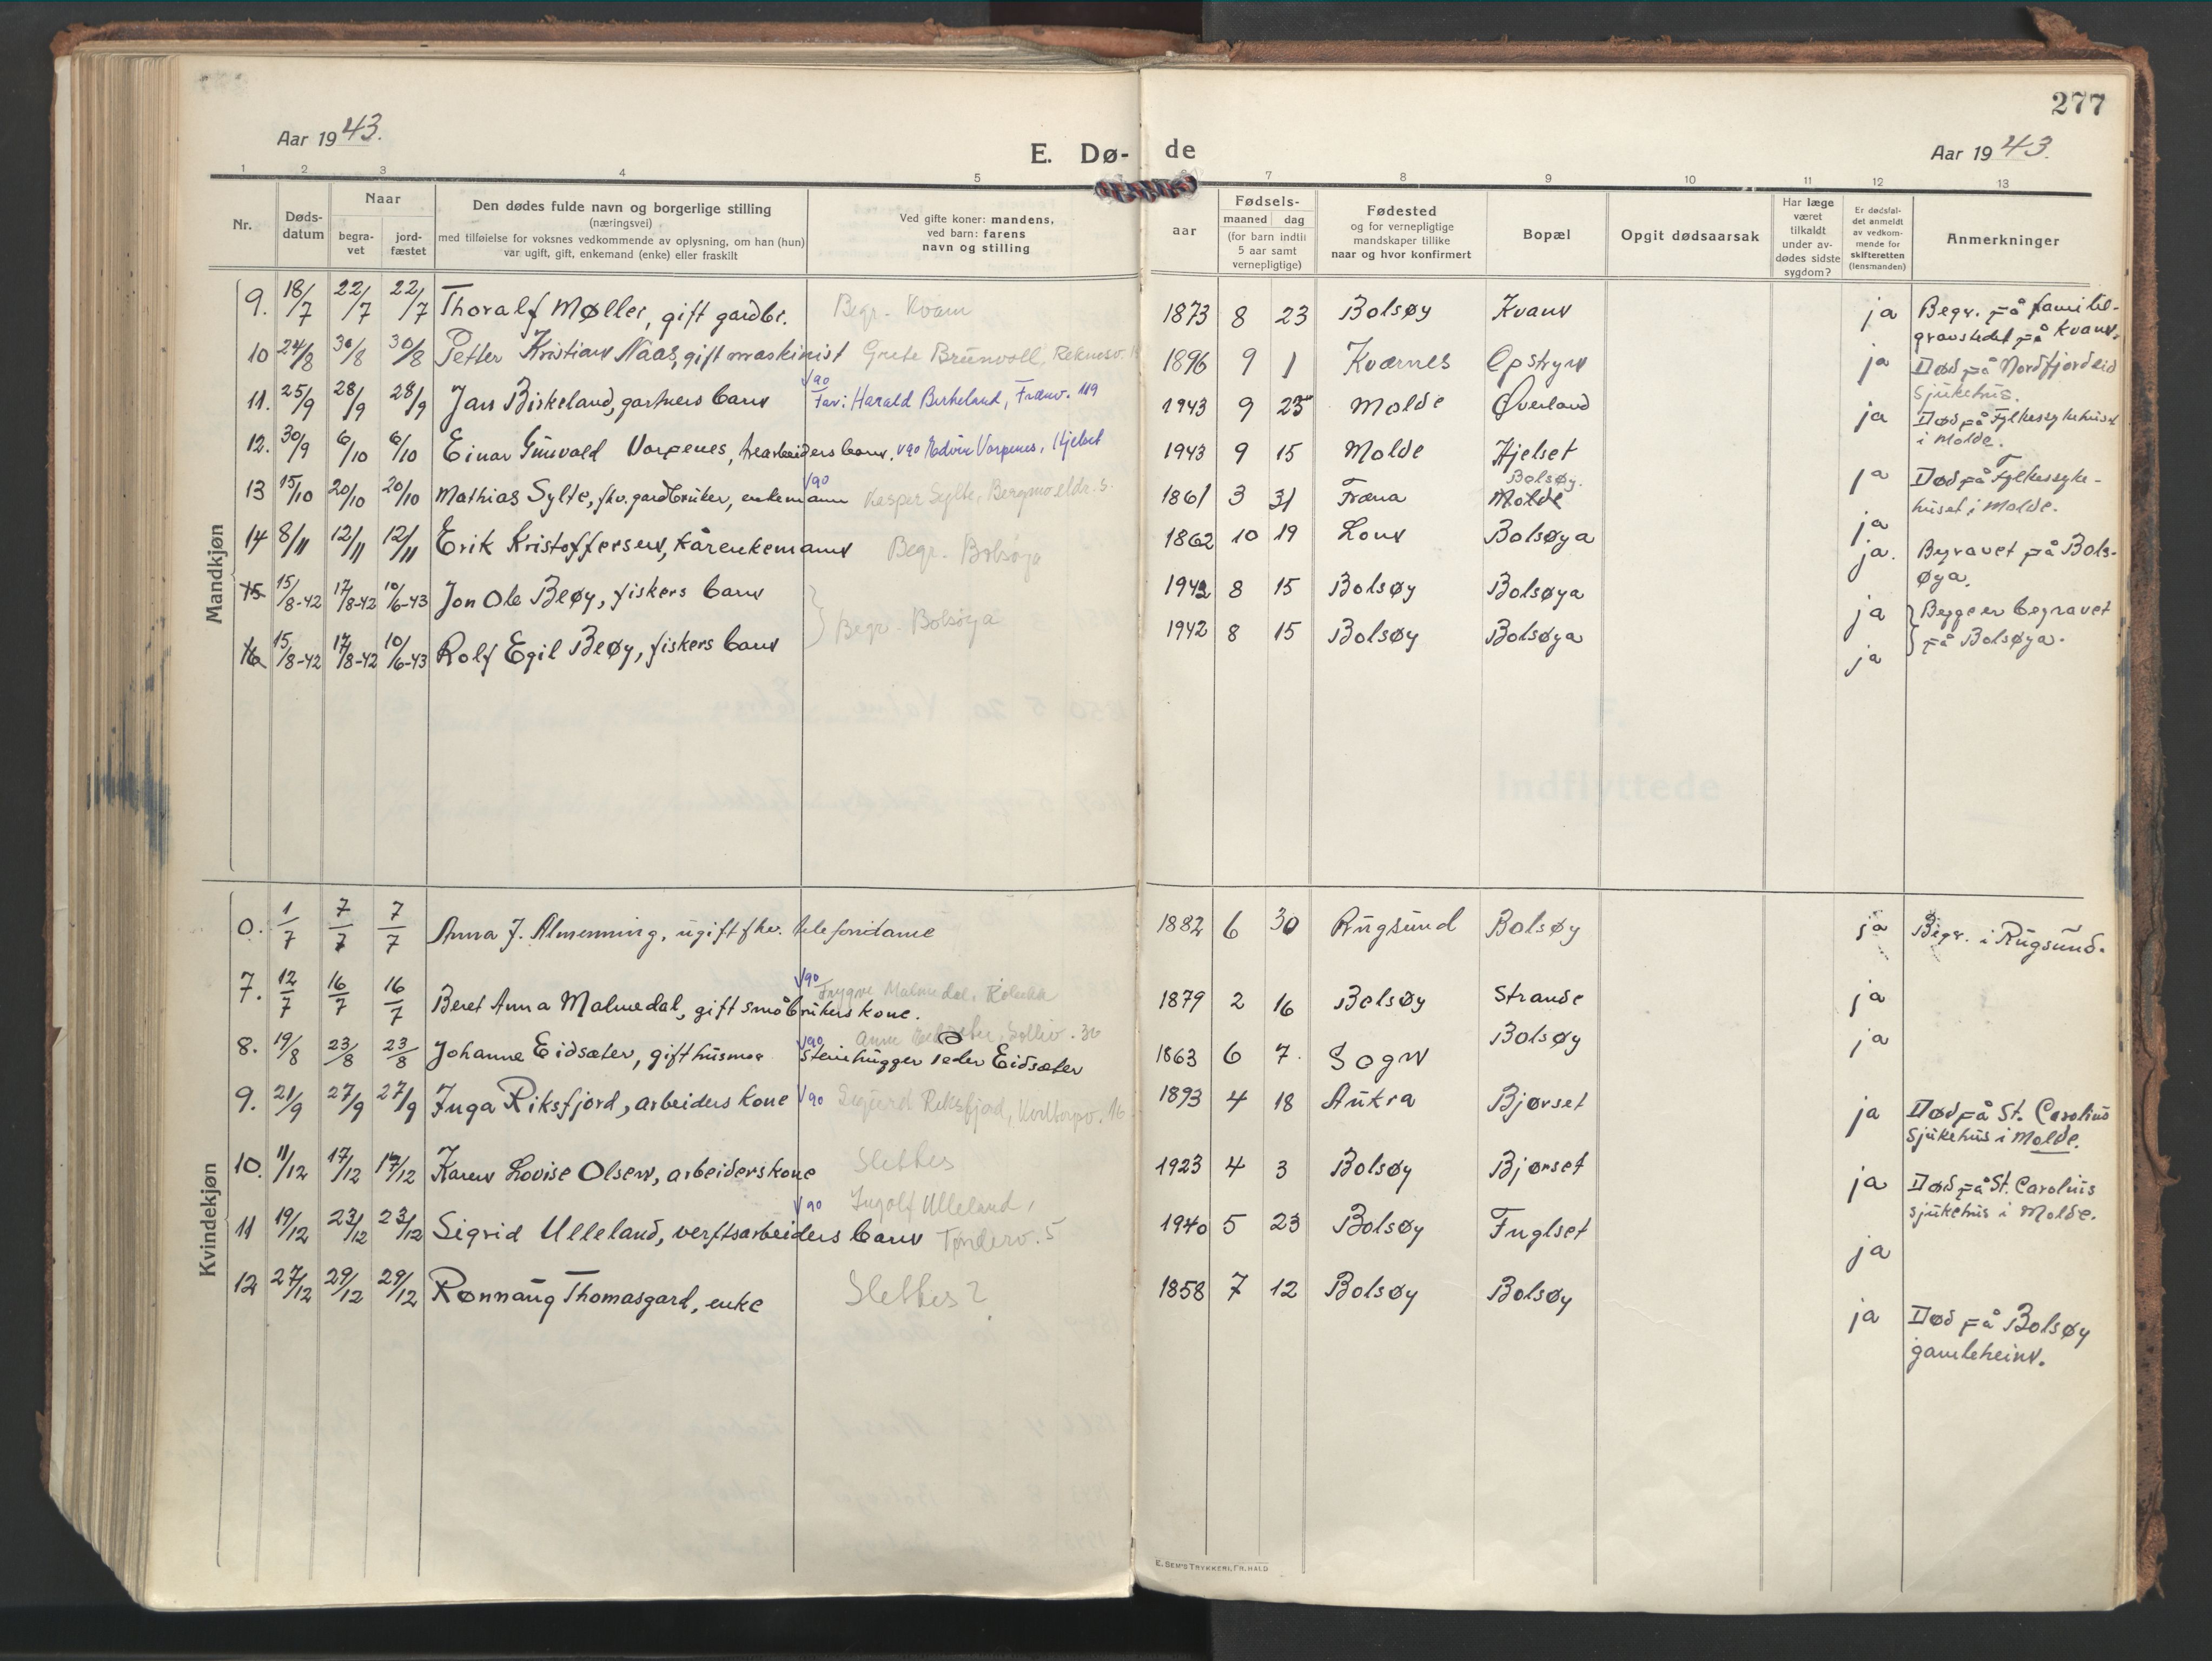 277
Aar 1943.
E. Dø- de
Aar 1943.
1 2 3 4 5 7 8 9 10 11 12 13
Nr.
Døds-
datum
Naar
begra-
vet
jord-
fæstet
Den dødes fulde navn og borgerlige stilling
(næringsvei)
med tilføielse for voksnes vedkommende av oplysning, om han (hun)
var ugift, gift, enkemand (enke) eller fraskilt
Ved gifte koner: mandens,
ved barn: farens
navn og stilling
aar
Fødsels-
maaned dag
(for barn indtil
5 aar samt
vernepligtige)
Fødested
og for vernepligtige
mandskaper tillike
naar og hvor konfirmert
Bopæl
Opgit dødsaarsak
Har læge
været
tilkaldt
under av-
dødes sidste
sygdom?
Er dødsfal-
det anmeldt
av vedkom-
mende for
skifteretten
(lensmanden)
Anmerkninger
Mandkjøn
9. 18/7 22/7 22/7 Thoralf Møller, gift gardbr. Begr. Kvam 1873 8 23 Bolsøy Kvam ja Begr. på familie-
gravstedet på Kvam.
10 24/8 30/8 30/8 Petter Kristian Naas, gift maskinist Grete Brunvoll, Reknesv. 1896 9 1 Kvernes Opstryn ja Død på Nordfjordeid
sjukehus.
11. 25/9 28/9 28/9 Jan Birkeland, gartners barn V90 Far: Harald Birkeland, Frænv. 119 1943 9 23 Molde Øverland ja Død på Fylkessykehuset
i Molde.
12. 30/9 6/10 6/10 Einar Gunvald Varpenes, trearbeiders barn. V90 Edvin Varpenes, Hjelset 1943 9 15 Molde Hjelset
Bolsøy.
ja Død på Fylkessyke-
huset i Molde.
13 15/10 20/10 20/10 Mathias Sylte, fhv. gardbruker, enkemann V90 Kasper Sylte, Bergmoeldr. 5. 1861 3 31 Fræna Molde ja
14 8/11 12/11 12/11 Erik Kristoffersen, kårenkemann Begr. Bolsøya 1862 10 19 Lom Bolsøya ja. Begravet på Bols-
øya.
15 15/8-42 17/8-42 10/6-43 Jon Ole Beøy, fiskers barn 1942 8 15 Bolsøy Bolsøya ja Begge er begravet
Begr. Bolsøya
16 15/8-42 17/8-42 10/6-43 Rolf Egil Beøy, fiskers barn 1942 8 15 Bolsøy Bolsøya ja på Bolsøya.
Indflyttede
Kvindekjøn
0. 1/7 7/7 7/7 Anna J. Almenning, ugift fhv. telefondame 1882 6 30 Rugsund Bolsøy ja Begr. i Rugsund.
7. 12/7 16/7 16/7 Beret Anna Malmedal, gift småbrukers kone. V90 Trygve Malmedal, 1879 2 16 Bolsøy Strande ja
8. 19/8 23/8 23/8 Johanne Eidsæter, gift husmor V90 Steinhugger Peder Eidsæter 1863 6 7. Sogn Bolsøy ja
9. 21/9 27/9 27/9 Inga Riksfjord, arbeiders kone V90 Sigurd Riksfjord, 1893 4 18 Aukra Bjørset ja Død på St. Carolus
sjukehus i Molde.
10. 11/12 17/12 17/12 Karen Lovise Olsen, arbeiderskone Slettes 1923 4 3 Bolsøy Bjørset ja Død på St. Carolus
sjukehus i Molde.
11 19/12 23/12 23/12 Sigrid Ulleland, verftsarbeiders barn V90 Ingolf Ulleland, Tønderv. 5 1940 5 23 Bolsøy Fuglset ja
12 27/12 29/12 29/12 Rønnaug Thomasgard, enke Slettes? 1858 7 12 Bolsøy Bolsøy ja Død på Bolsøy
gamleheim.
E. SEM'S TRYKKERI, FR.HALD